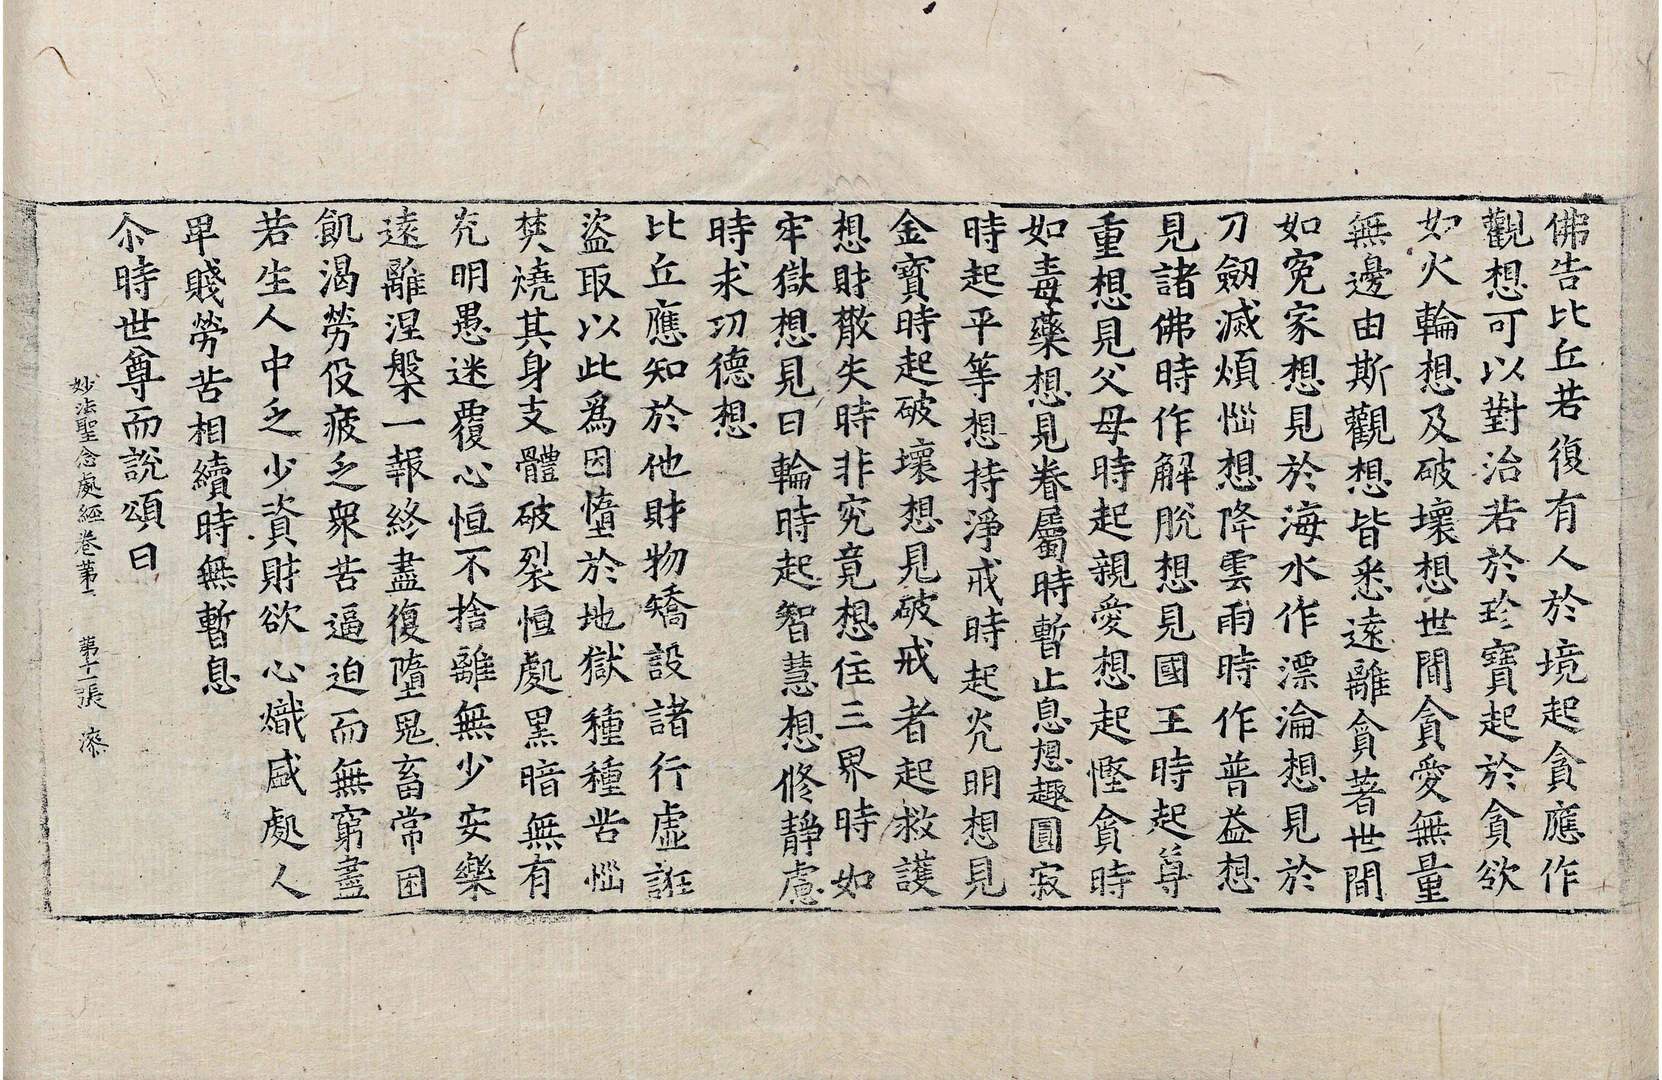 佛告比丘若復有人於境起貪應作
觀想可以對治若於珍寶起於貪欲
如火輪想及破壞想世間貪愛無量
無邊由斯觀想皆悉遠離貪著世間
如冤家想見於海水作漂淪想見於
刀劒滅煩惱想降雲雨時作普益想
見諸佛時作解脫想見國王時起尊
重想見父母時起親愛想起慳貪時
如毒藥想見眷屬時暫止息想趣圓寂
時起平等想持淨戒時起光明想見
金寶時起破壞想見破戒者起救護
想財散失時非究竟想住三界時如
牢獄想見日輪時起智慧想修靜慮
時求功德想
比丘應知於他財物矯設諸行虛誑
盜取以此爲因墮於地獄種種苦惱
焚燒其身支體破裂恒處黑暗無有
光明愚迷覆心恒不捨離無少安樂
遠離涅槃一報終盡復墮鬼畜常困
飢渴勞役疲乏衆苦逼迫而無窮盡
若生人中乏少資財欲心熾盛處人
卑賤勞苦相續時無暫息
尒時世尊而說頌曰
妙法聖念處經卷第二　第十一張　漆